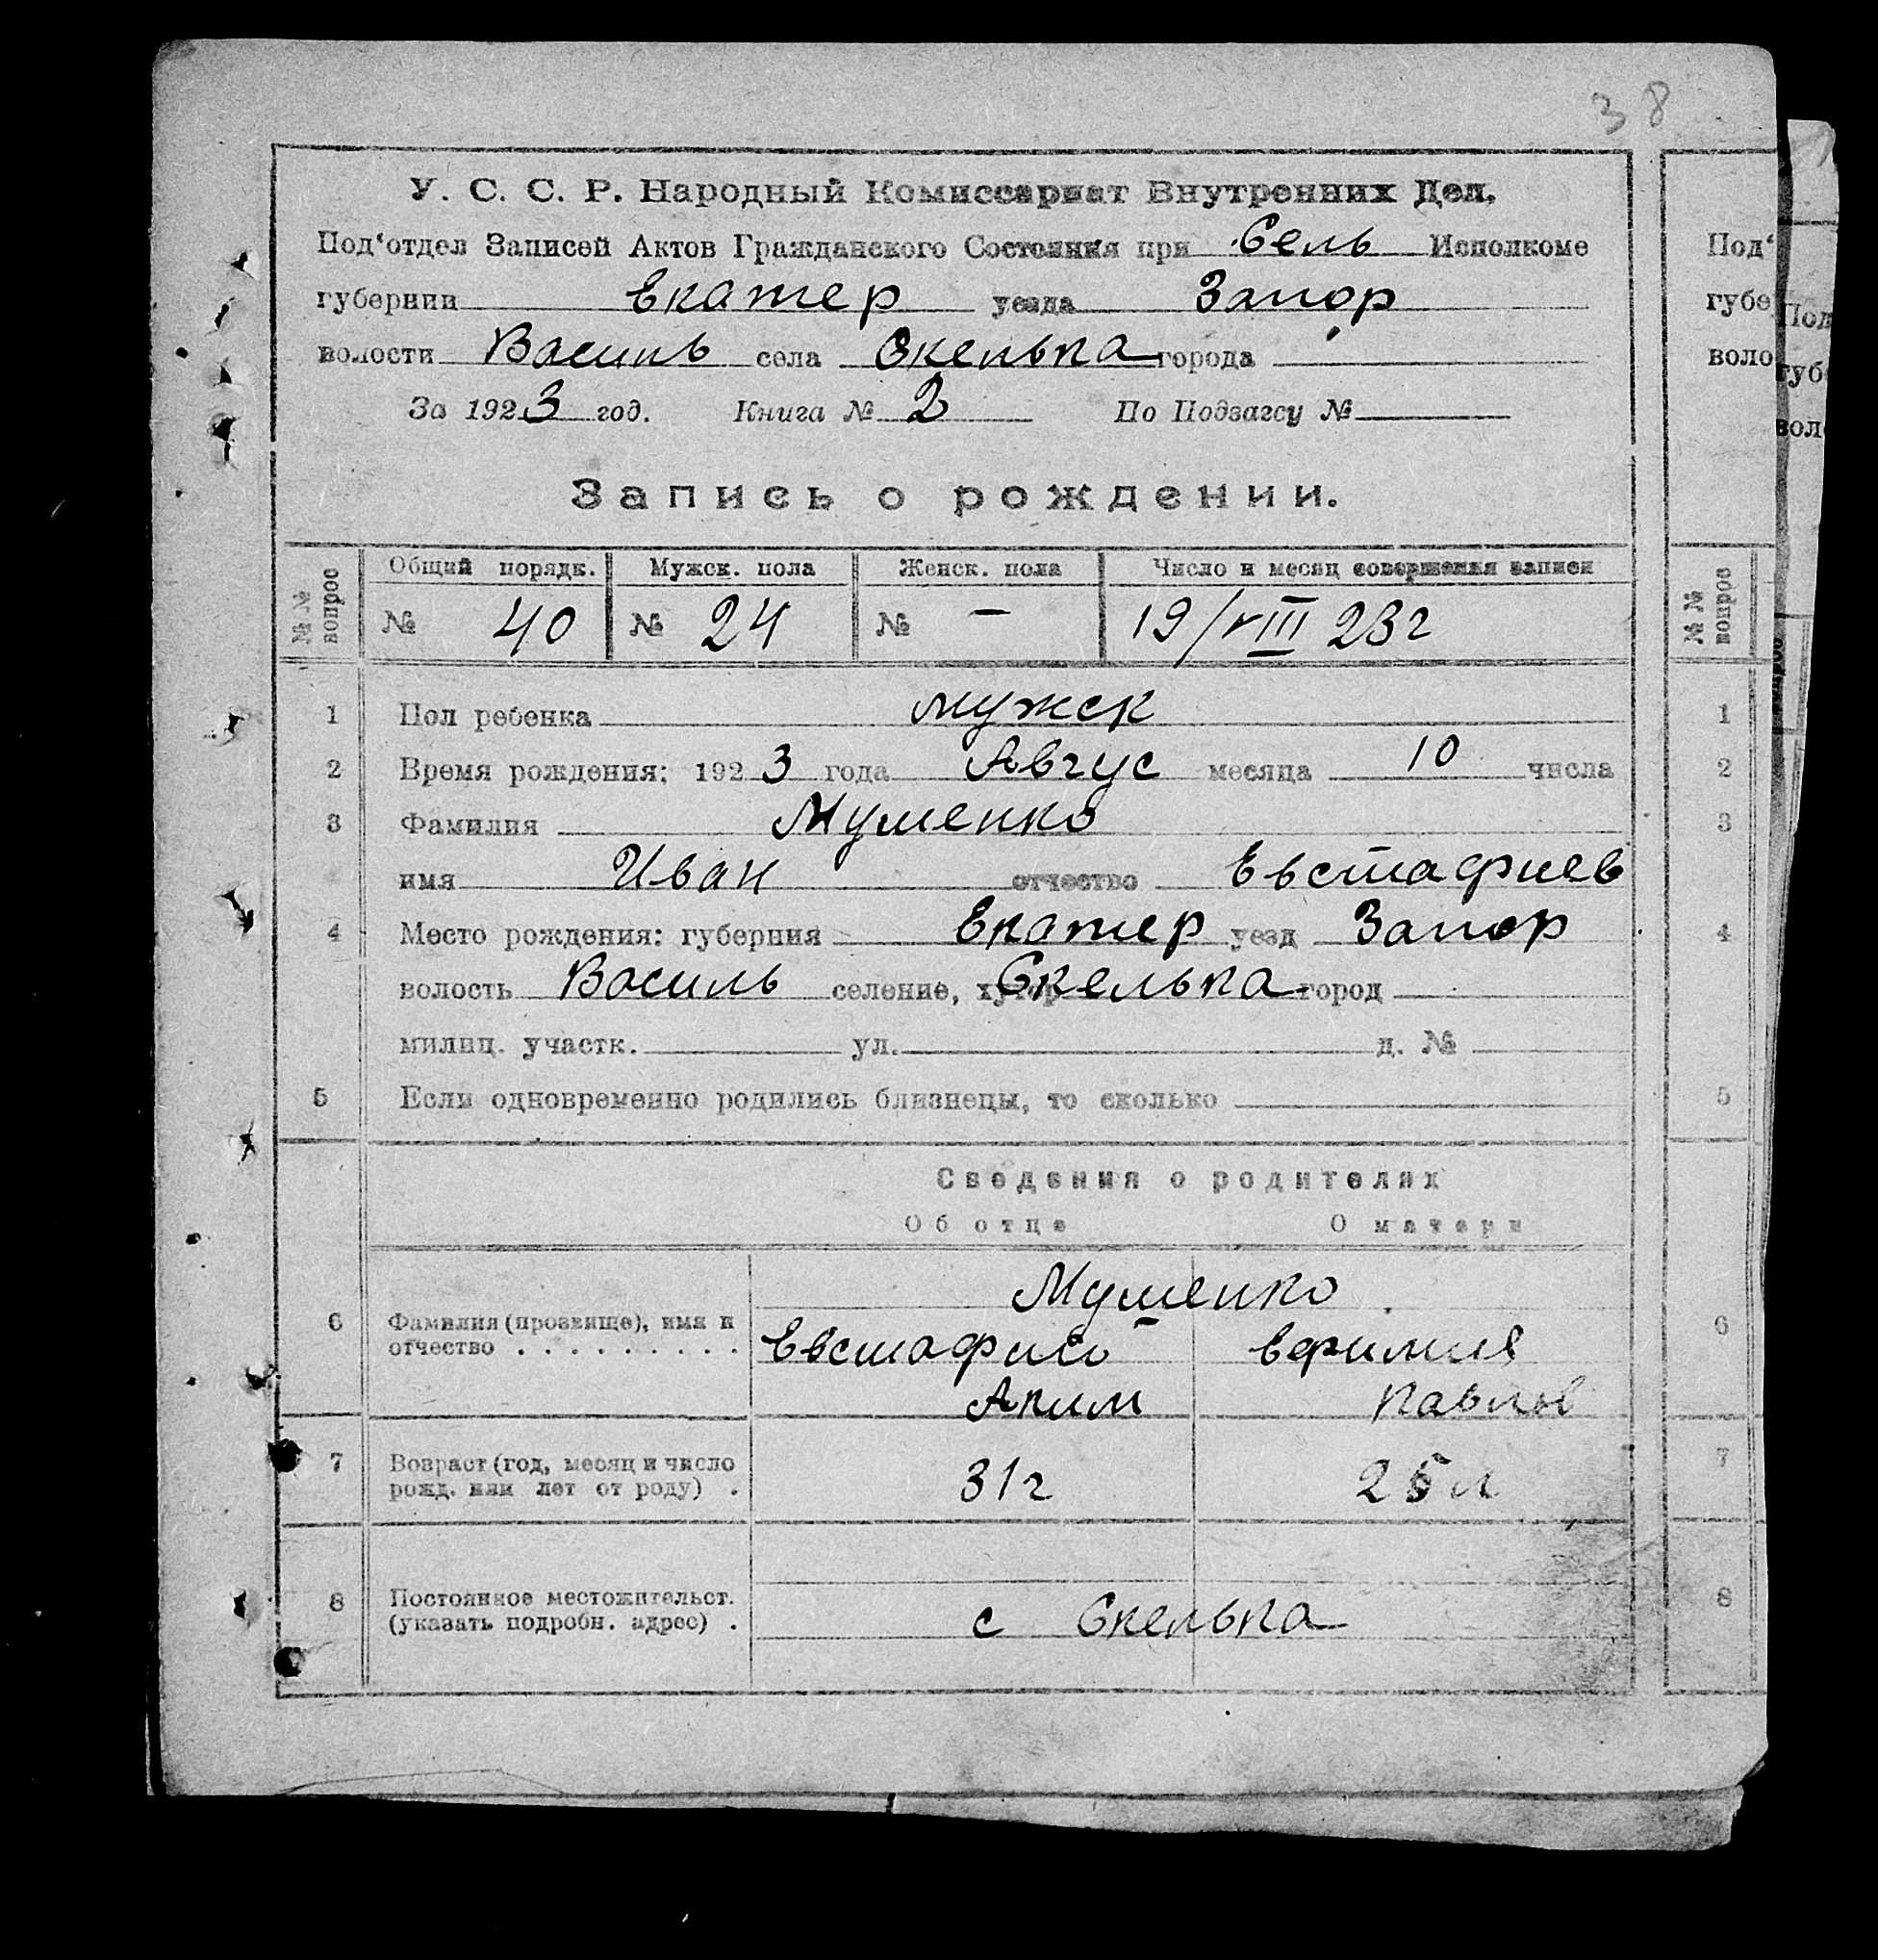 38
У. С. С. Р. Народный Комиссариат Внутренних Дел.
Под‘отдел Записей Актов Гражданского Состояния при Сель Исполкоме
губернии Екатер уезда Запор
волости Василь села Скелька города
За 1923 год. Книга № 2 По Подзагсу №
Запись о рождении.
№№ вопрос Общий порядк. Мужск. пола Женск. пола Число и месяц совершения записи
№ 40 № 24 № — 19/VIII 23 г
1 Пол ребенка мужск
2 Время рождения: 1923 года Август месяца 10 числа
3 Фамилия Мушенко
имя Иван отчество Евстафиев
4 Место рождения: губерния Екатер уезд Запор
волость Василь селение, хутор Скелька город
милиц. участк. ул. д. №
5 Если одновременно родились близнецы, то сколько
Сведения о родителях
Об отце О матери
Мушенко
6 Фамилия (прозвище), имя и
отчество . . . . . . . . . Евстафий Ефимия
Аким Павлов
7 Возраст (год, месяц и число
рожд. или лет от роду) . 31 г 25 л
8 Постоянное местожительст.
(указать подробн. адрес) . с Скелька
Под‘
губе
воло
№№ вопрос
1
2
3
4
5
6
7
8
Под
губе
воло